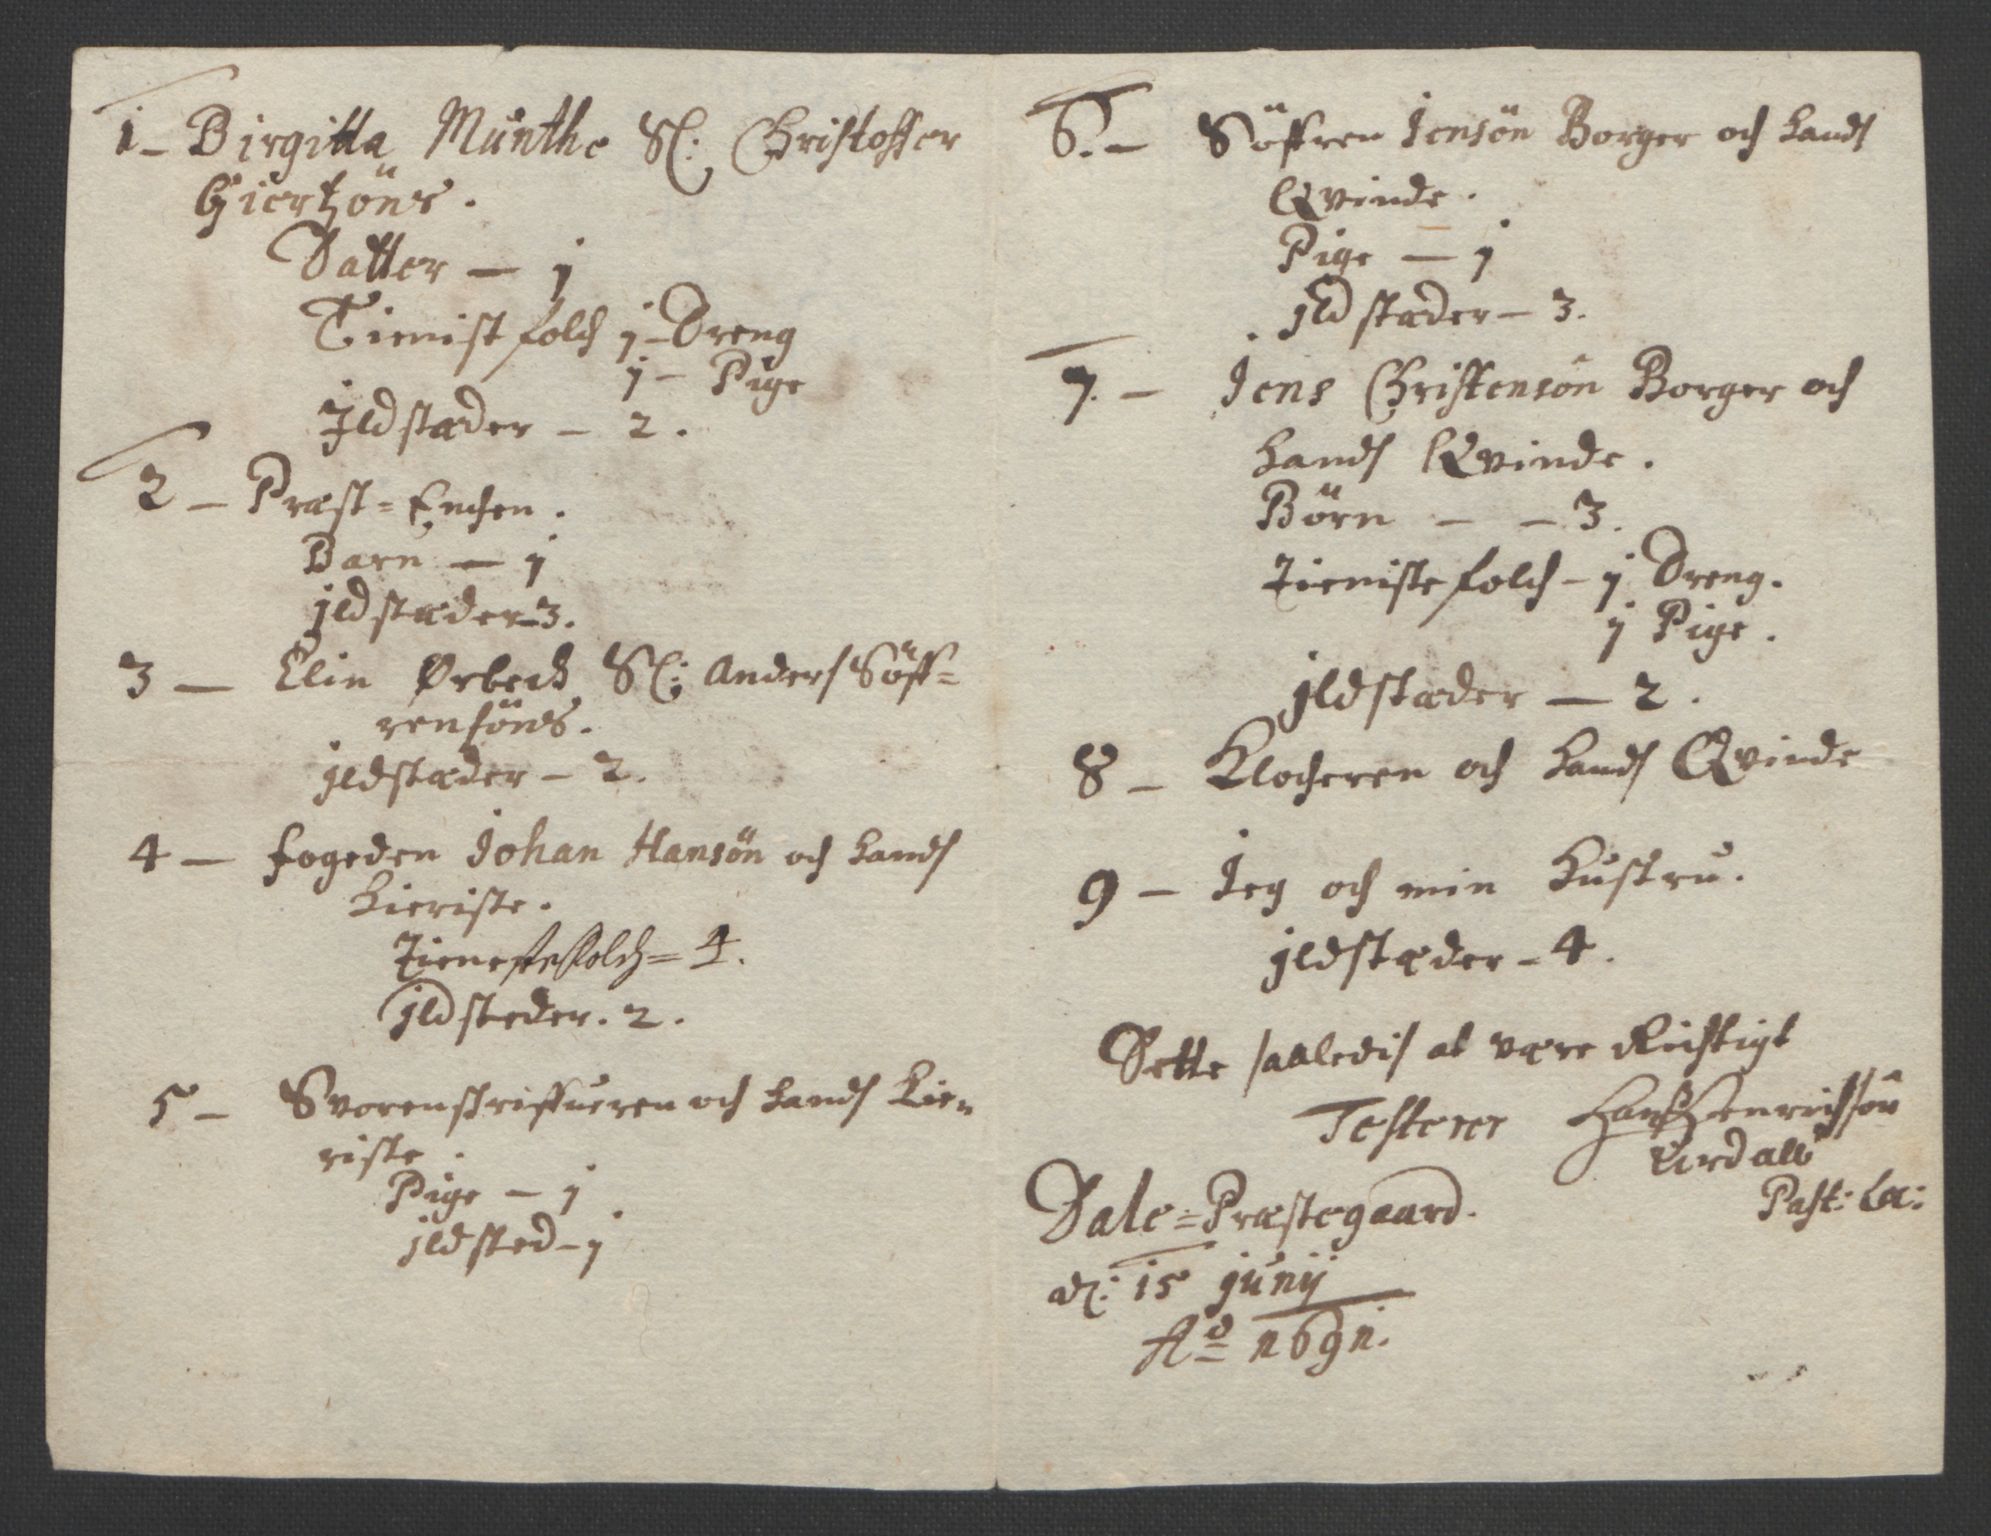 1 – Birgitta Münthe Sl: Christoffer
Giertzöns.
Datter – j
Tienist folch j – Dreng
j – Pige
Jldstæder – 2.
2 – Præst = Enchen.
Barn – j
jldstæder – 3.
3 – Elin Ørbech Sl: Anders Söff=
rensöns.
jldstæder – 2.
4 – fogeden Johan Hansön och hands
Kieriste.
Tieneste folch = 4.
jldsteder. 2.
5 – Svorenskriffueren och hands Kie=
riste.
Pige – j.
jldsted – j
6. – Söffren Jensön Borger och hands
Qvinde.
Pige – j
jldstæder – 3.
7. – Jens Christensön Borger och
hands Qvinde.
Börn – – 3.
Tieniste folch – j Dreng.
j Pige.
jldstæder – 2.
8 – Klocheren och hands Qvinde
9 – Jeg och min Hustru.
jldstæder – 4.
Dette saaledis at være Richtigt
Testerer Hans Henrichsøn
Urdall
Past: Loc:
Dale = Præstegaard.
d: 15 junij
Ao 1691.